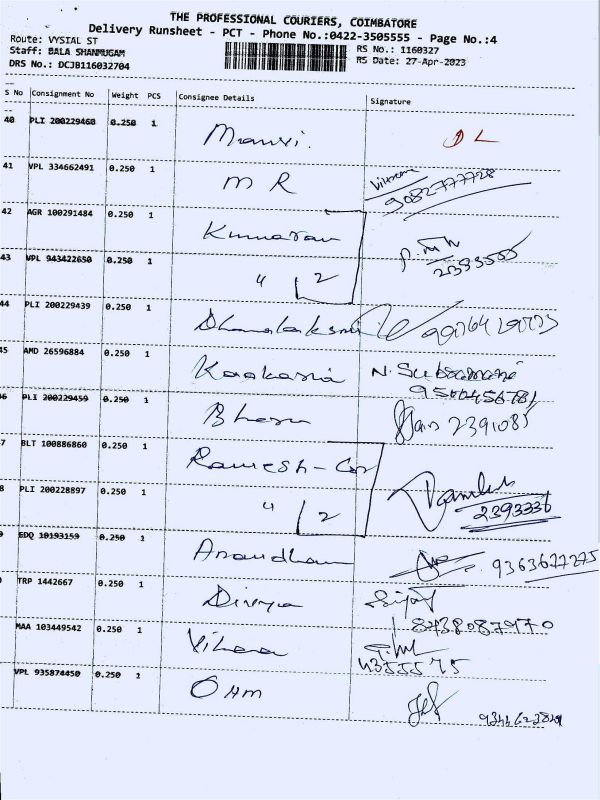 THE PROFESSIONAL COURIERS, COIMBATORE
Delivery Runsheet - PCT - Phone No.:0422-3505555 - Page No.:4
Route: VYSIAL ST
RS No.: 1160327
Staff: BALA SHANMUGAM
RS Date: 27-Apr-2023
DRS No.: DCJB116032704
S No Consignment No Weight PCS Consignee Details Signature
40 PLI 200229460 0.250 1 DL
41 VPL 334662491 0.250 1 M R 9082777728
42 AGR 100291484 0.250 1 Kumaran
43 VPL 943422650 0.250 1 " 2 2393555
44 PLI 200229439 0.250 1
45 AMD 26596884 0.250 1 N. Subramani
6 PLI 200229459 0.250 1 2391085
7 BLT 100886860 0.250 1 Ramesh
8 PLI 200228897 0.250 1 " 2 2393336
9 EDQ 10193159 0.250 1 9363677275
TRP 1442667 0.250 1 Divya
8438087970
MAA 103449542 0.250 1 4355575
VPL 935874450 0.250 1 OHM